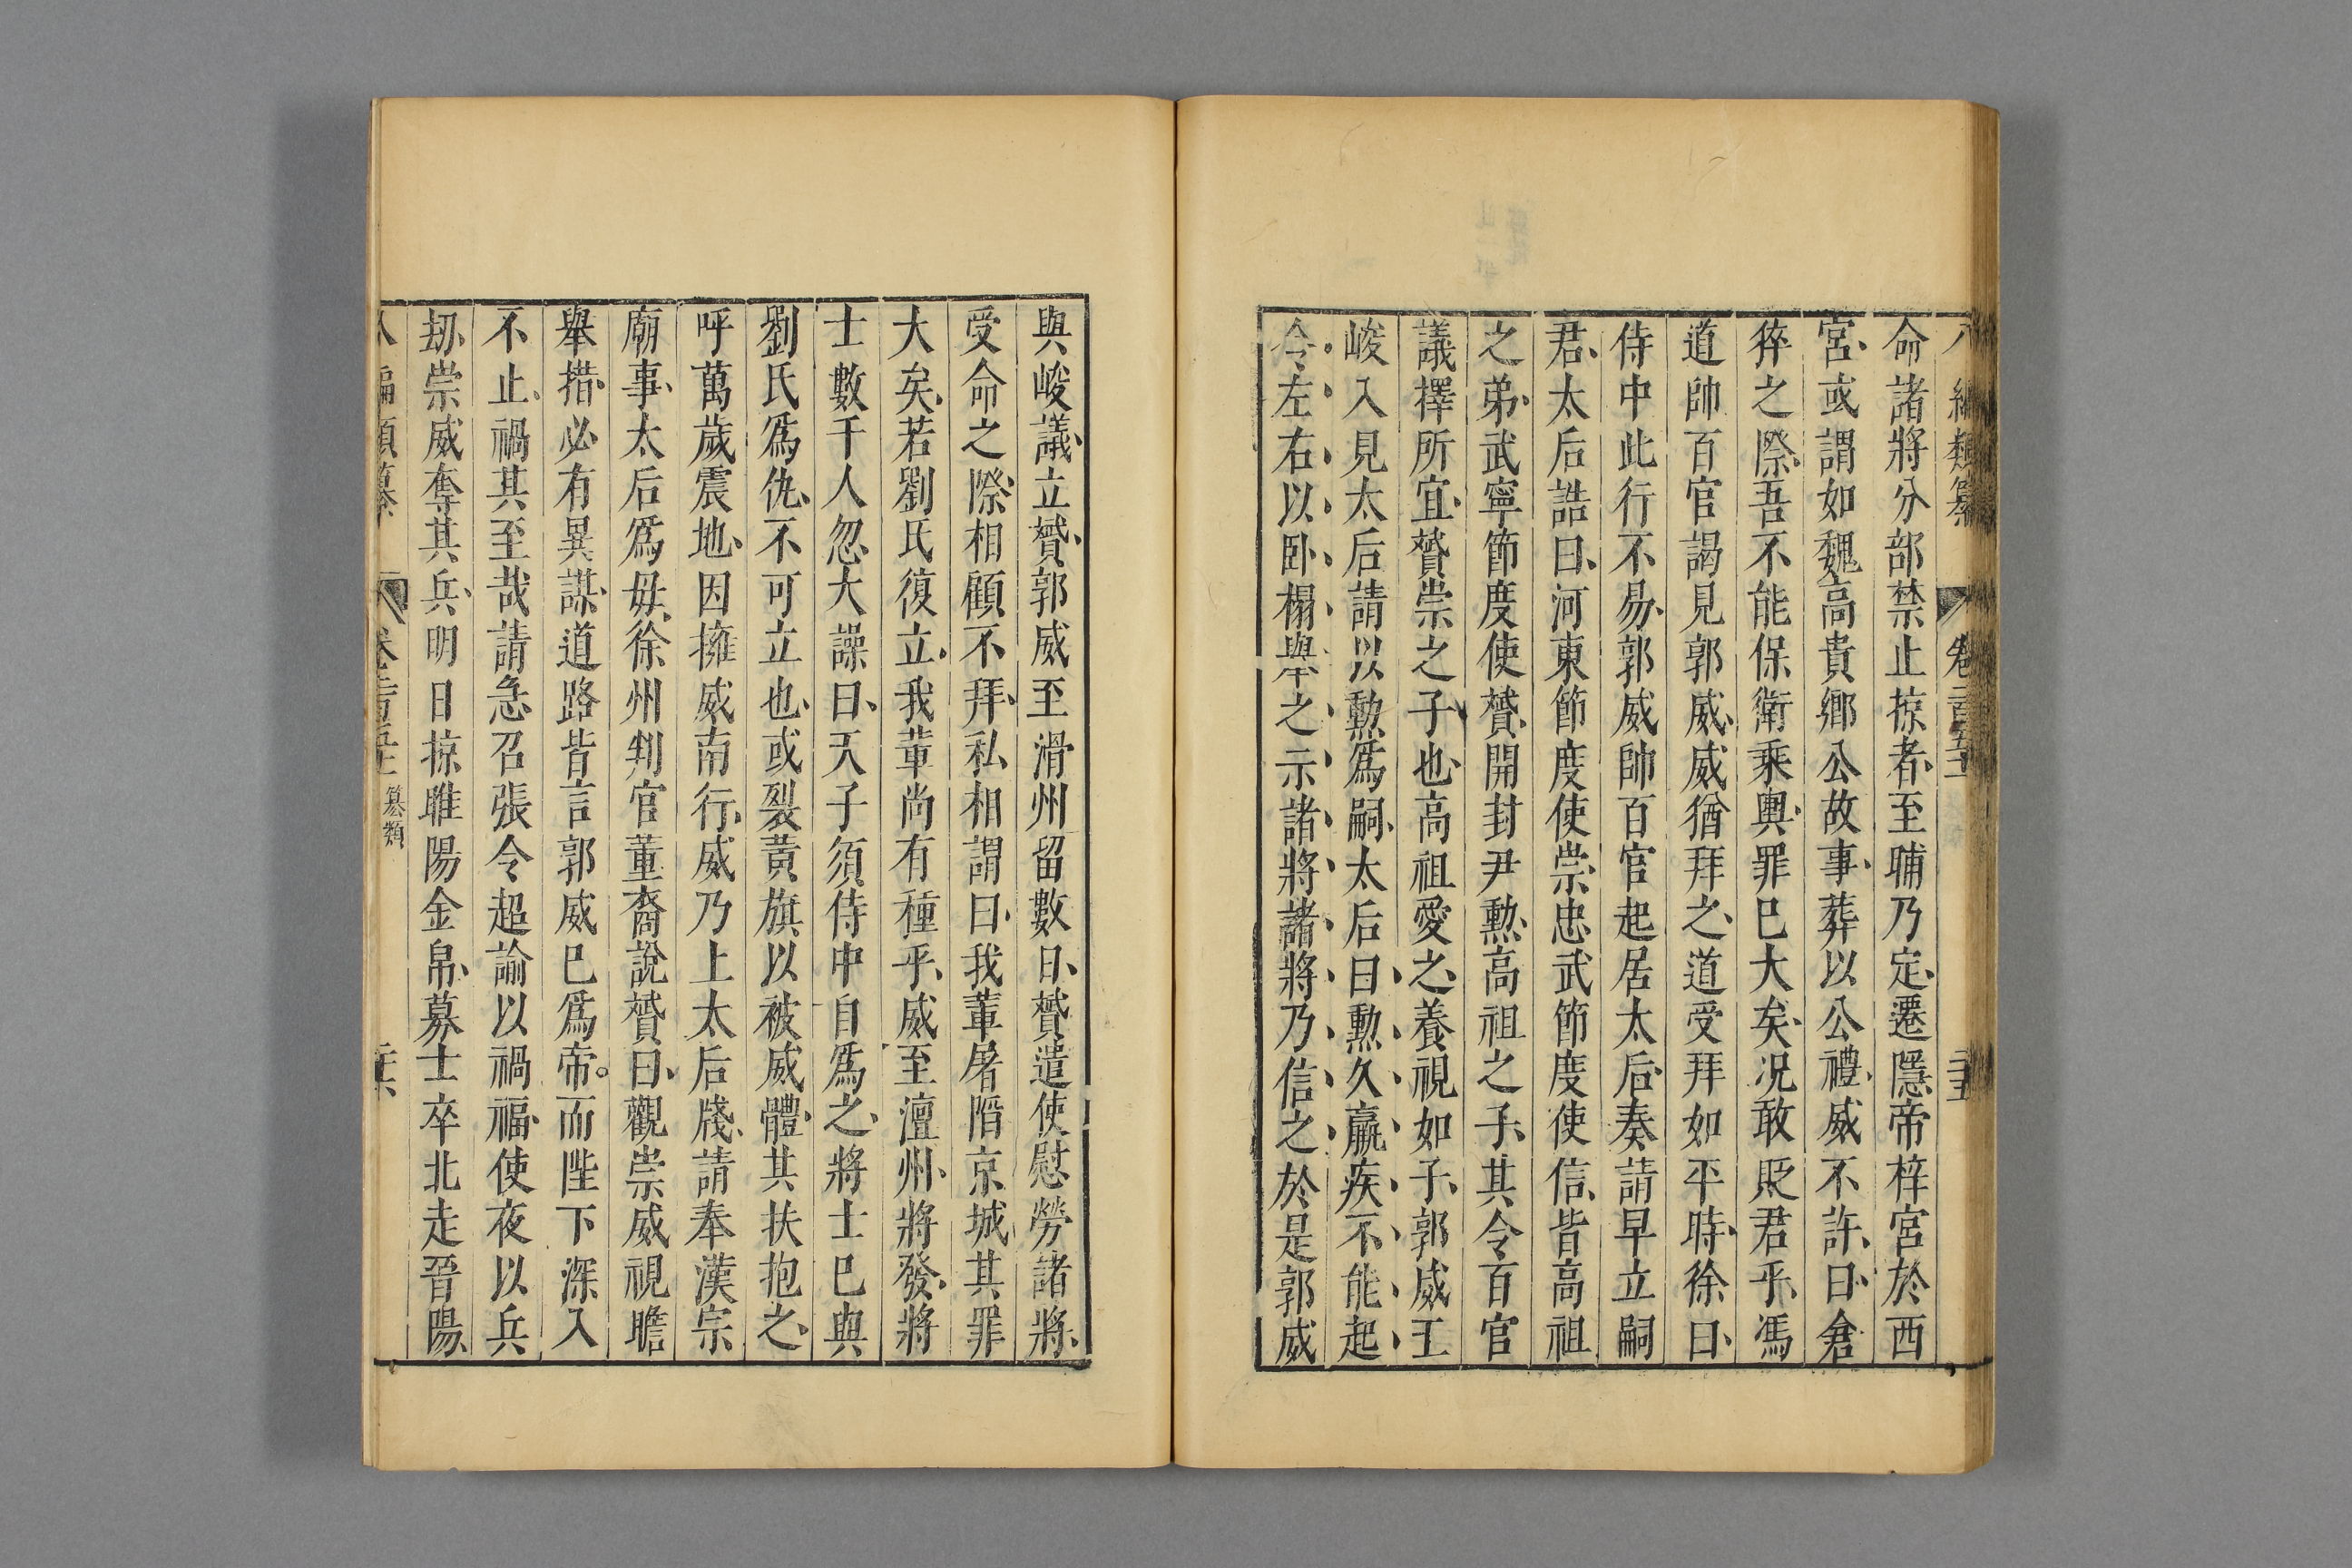 八編類纂 卷二百五十一 二十五
命諸將分部禁止掠者、至晡乃定、遷隱帝梓宮於西
宮、或謂如魏高貴鄉公故事、葬以公禮、威不許、曰、倉
猝之際、吾不能保衛乘輿、罪已大矣、况敢貶君乎、馮
道帥百官謁見郭威、威猶拜之、道受拜如平時、徐曰、
侍中此行不易、郭威帥百官起居太后、奏請早立嗣
君、太后誥曰、河東節度使崇、忠武節度使信、皆高祖
之弟、武寧節度使贇、開封尹勲、高祖之子、其令百官
議擇所宜、贇崇之子也、高祖愛之、養視如子、郭威王
峻入見太后請以勲爲嗣、太后曰勲久羸疾、不能起、
令左右以卧榻舉之示諸將、諸將乃信之、於是郭威
與峻議、立贇、郭威至滑州留數日、贇遣使慰勞諸將、
受命之際、相顧不拜、私相謂曰、我輩屠陷京城其罪
大矣、若劉氏復立、我輩尚有種乎、威至澶州、將發、將
士數千人忽大譟曰、天子須侍中自爲之、將士已與
劉氏爲仇、不可立也、或裂黃旗以被威體、其扶抱之、
呼萬歲震地、因擁威南行、威乃上太后牋、請奉漢宗
廟事、太后爲毋、徐州判官董裔說贇曰、觀崇威視瞻
舉措、必有異謀、道路皆言郭威已爲帝。而陛下深入
不止、禍其至哉請急召張令超諭以禍福、使夜以兵
刼崇威奪其兵、明日掠睢陽金帛、募士卒北走晉陽、
八編類纂 卷二百五十一 篡類 二十六